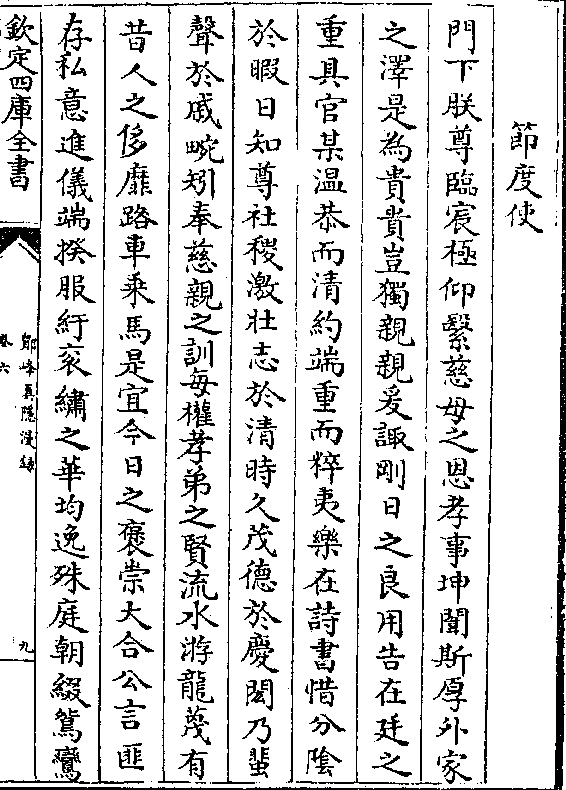 節度使
門下朕尊臨宸極仰繄慈母之恩孝事坤闈斯厚外家
之澤是為貴貴豈獨親親爰諏剛日之良用告在廷之
重具官某温恭而清約端重而粹夷樂在詩書惜分陰
於暇日知尊社稷激壯志於清時久茂德於慶閎乃蜚
聲於戚畹矧奉慈親之訓每櫂孝弟之賢流水游龍蔑有
昔人之侈靡路車乘馬是宜今日之褒崇大合公言匪
存私意進儀端揆服紆衮繡之華均逸殊庭朝綴鴛鸞
欽定四庫全書
鄮峰真隱漫録
卷六
九